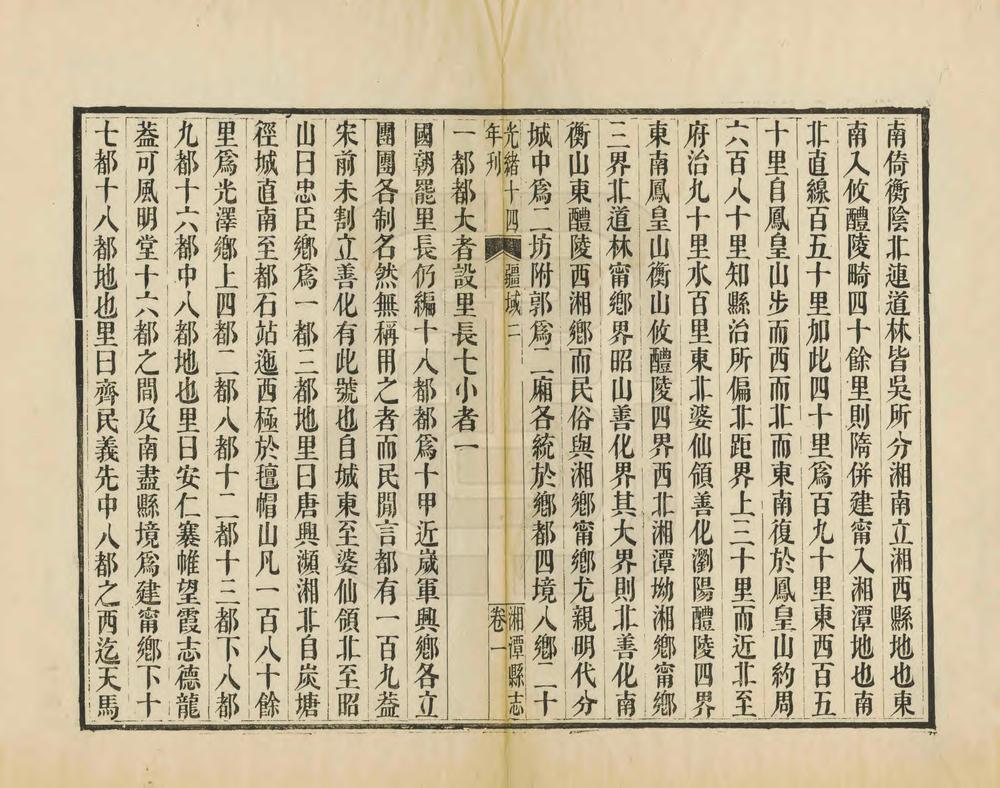 南倚衡陰北連道林皆吳所分湘南立湘西縣地也東
南入攸醴陵畸四十餘里則隋併建甯入湘潭地也南
北直線百五十里加此四十里爲百九十里東西百五
十里自鳳皇山步而西而北而東南復於鳳皇山約周
六百八十里知縣治所偏北距界上三十里而近北至
府治九十里水百里東北婆仙領善化瀏陽醴陵四界
東南鳳皇山衡山攸醴陵四界西北湘潭坳湘鄉甯鄉
三界北道林甯鄉界昭山善化界其大界則北善化南
衡山東醴陵西湘鄉而民俗與湘鄉甯鄉尤親明代分
城中爲二坊附郭爲二廂各統於鄉都四境八鄉二十
光緒十四
年刊
疆域二
湘潭縣志
卷一
一都都大者設里長七小者一
國朝罷里長仍編十八都都爲十甲近歲軍興鄉各立
團團各制名然無稱用之者而民閒言都有一百九葢
宋前未割立善化有此號也自城東至婆仙領北至昭
山曰忠臣鄉爲一都三都地里曰唐興瀕湘北自炭塘
徑城直南至都石站迤西極於氊帽山凡一百八十餘
里爲光澤鄉上四都二都八都十二都十三都下八都
九都十六都中八都地也里曰安仁褰帷望霞志德龍
葢可風明堂十六都之間及南盡縣境爲建甯鄉下十
七都十八都地也里曰齊民義先中八都之西迄天馬